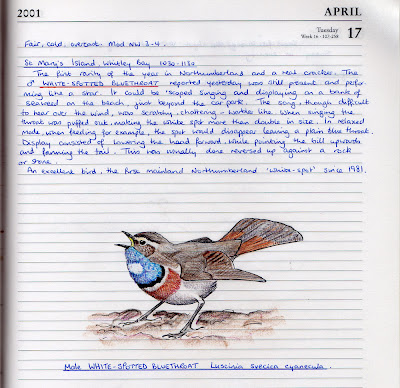 2001 APRIL
Tuesday 17
Week 16 · 107-258
Fair, cold, overcast. Mod NW 3-4.
St Mary's Island, Whitley Bay 1030-1130
The first rarity of the year in Northumberland and a real cracker. The
♂ WHITE-SPOTTED BLUETHROAT reported yesterday was still present and perfor
ming like a star. It could be 'scoped singing and displaying on a bank of
seaweed on the beach, just beyond the car park. The song, though difficult
to hear over the wind, was scratchy, chattering - warbler like. When singing the
throat was puffed out, making the white spot more than double in size. In relaxed
mode, when feeding for example, the spot would disappear leaving a plain blue throat.
Display consisted of lowering the head forward, while pointing the bill upwards
and fanning the tail. This was usually done reversed up against a rock
or stone.
An excellent bird, the first mainland Northumberland 'white-spot' since 1981.
Male WHITE-SPOTTED BLUETHROAT Luscinia svecica cyanecula.